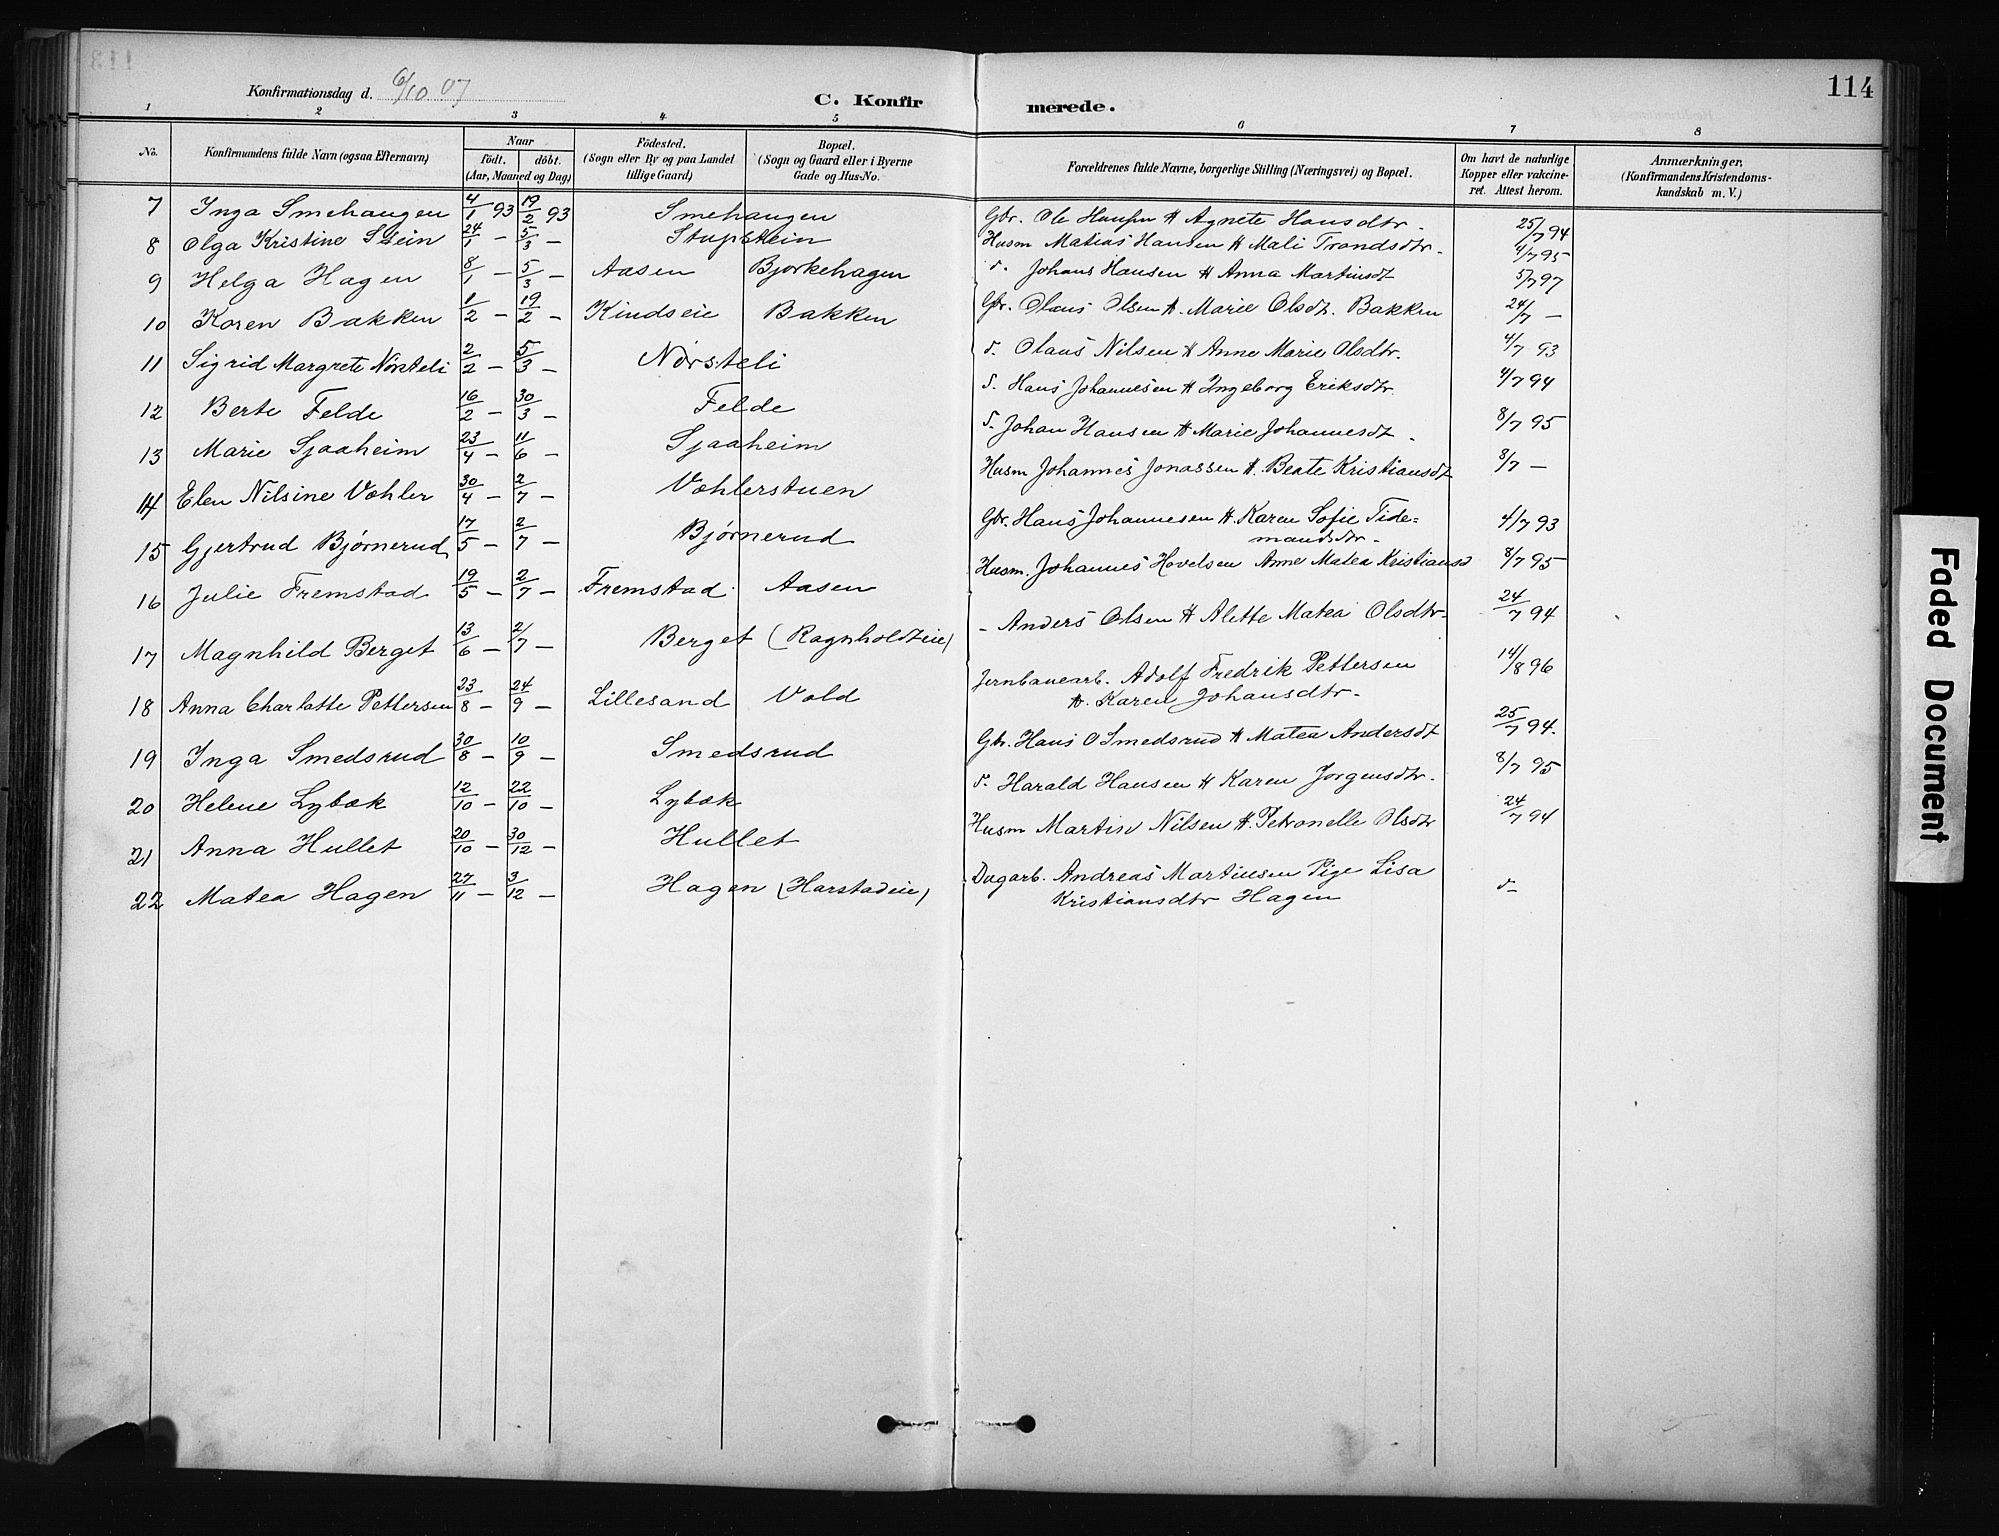 114
Konfirmationsdag d. 6/10 07
C. Konfirmerede.
1 2 3 4 5 6 7 8
No.
Konfirmandens fulde Navn (ogsaa Efternavn)
Naar
födt. döbt.
(Aar, Maaned og Dag)
Födested.
(Sogn eller By og paa Landet
tillige Gaard)
Bopæl.
(Sogn og Gaard eller i Byerne
Gade og Hus-No.
Forældrenes fulde Navne, borgerlige Stilling (Næringsvei) og Bopæl.
Om havt de naturlige
Kopper eller vakcine-
ret. Attest herom.
Anmærkninger,
(Konfirmandens Kristendoms-
kundskab m. V.)
7 Inga Smehaugen 4/1 93 19/2 93 Smehaugen Gbr. Ole Hansen & Agnete Hansdtr. 25/7 94
8 Olga Kristine Stein 24/1 - 5/3 - Stupstein Husm Matias Hansen & Mali Trondsdtr. 4/7 95
9 Helga Hagen 8/1 - 5/3 - Aasen Bjørkehagen d. Johans Hansen & Anna Martinsdt 5/7 97
10 Karen Bakken 1/2 - 19/2 - Kindseie Bakken Gbr. Olaus Olsen & Marie Olsdt. Bakken 24/7 -
11 Sigrid Margrete Nørsteli 2/2 - 5/3 - Nørsteli d. Olaus Nilsen & Anne Marie Olsdtr. 4/7 93
12 Berte Felde 16/2 - 30/3 - Felde d. Hans Johannesen & Ingeborg Eriksdtr. 4/7 94
13 Marie Sjaaheim 23/4 - 11/6 - Sjaaheim d. Johan Hansen & Marie Johannesdt. 8/7 95
14 Elen Nilsine Væhler 30/4 - 2/7 - Væhlerstuen Husm Johannes Jonassen & Beate Kristiansdt 8/7 -
15 Gjertrud Bjørnerud 17/5 - 2/7 - Bjørnerud Gbr. Hans Johannesen & Karen Sofie Tide=
mandsdtr. 4/7 93
16 Julie Fremstad 19/5 - 2/7 - Fremstad Aasen Husm. Johannes Hovelsen Anne Matea Kristiansd 8/7 95
17 Magnhild Berget 13/6 - 2/7 - Berget (Ragnholdteie) - Anders Olsen & Alette Matea Olsdtr. 24/7 94
18 Anna Charlotte Pettersen 23/8 - 24/9 - Lillesand Vold Jernbanearb. Adolf Fredrik Pettersen
& Karen Johansdtr. 14/8 96
19 Inga Smedsrud 30/8 - 10/9 - Smedsrud Gbr. Hans O Smedsrud & Matea Andersdt 25/7 94.
20 Helene Lybæk 12/10 - 22/10 - Lybæk d. Harald Hansen & Karen Jørgensdtr. 8/7 95
21 Anna Hullet 20/10 - 30/12 - Hullet Husm Martin Nilsen & Petronelle Olsdtr 24/7 94
22 Matea Hagen 27/11 - 3/12 - Hagen (Harstadeie) Dagarb. Andreas Martinsen Pige Lisa
Kristiansdtr Hagen d-
Faded Document